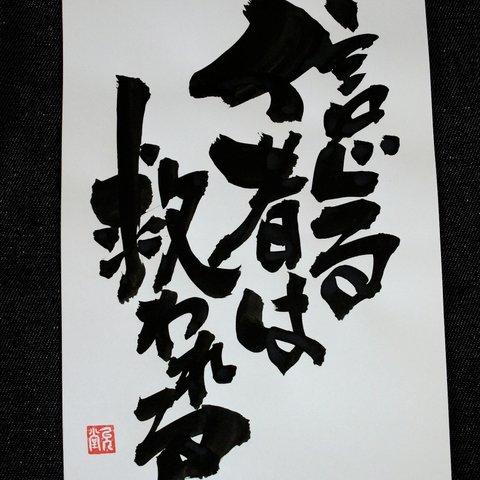 信じる
者は
救われる